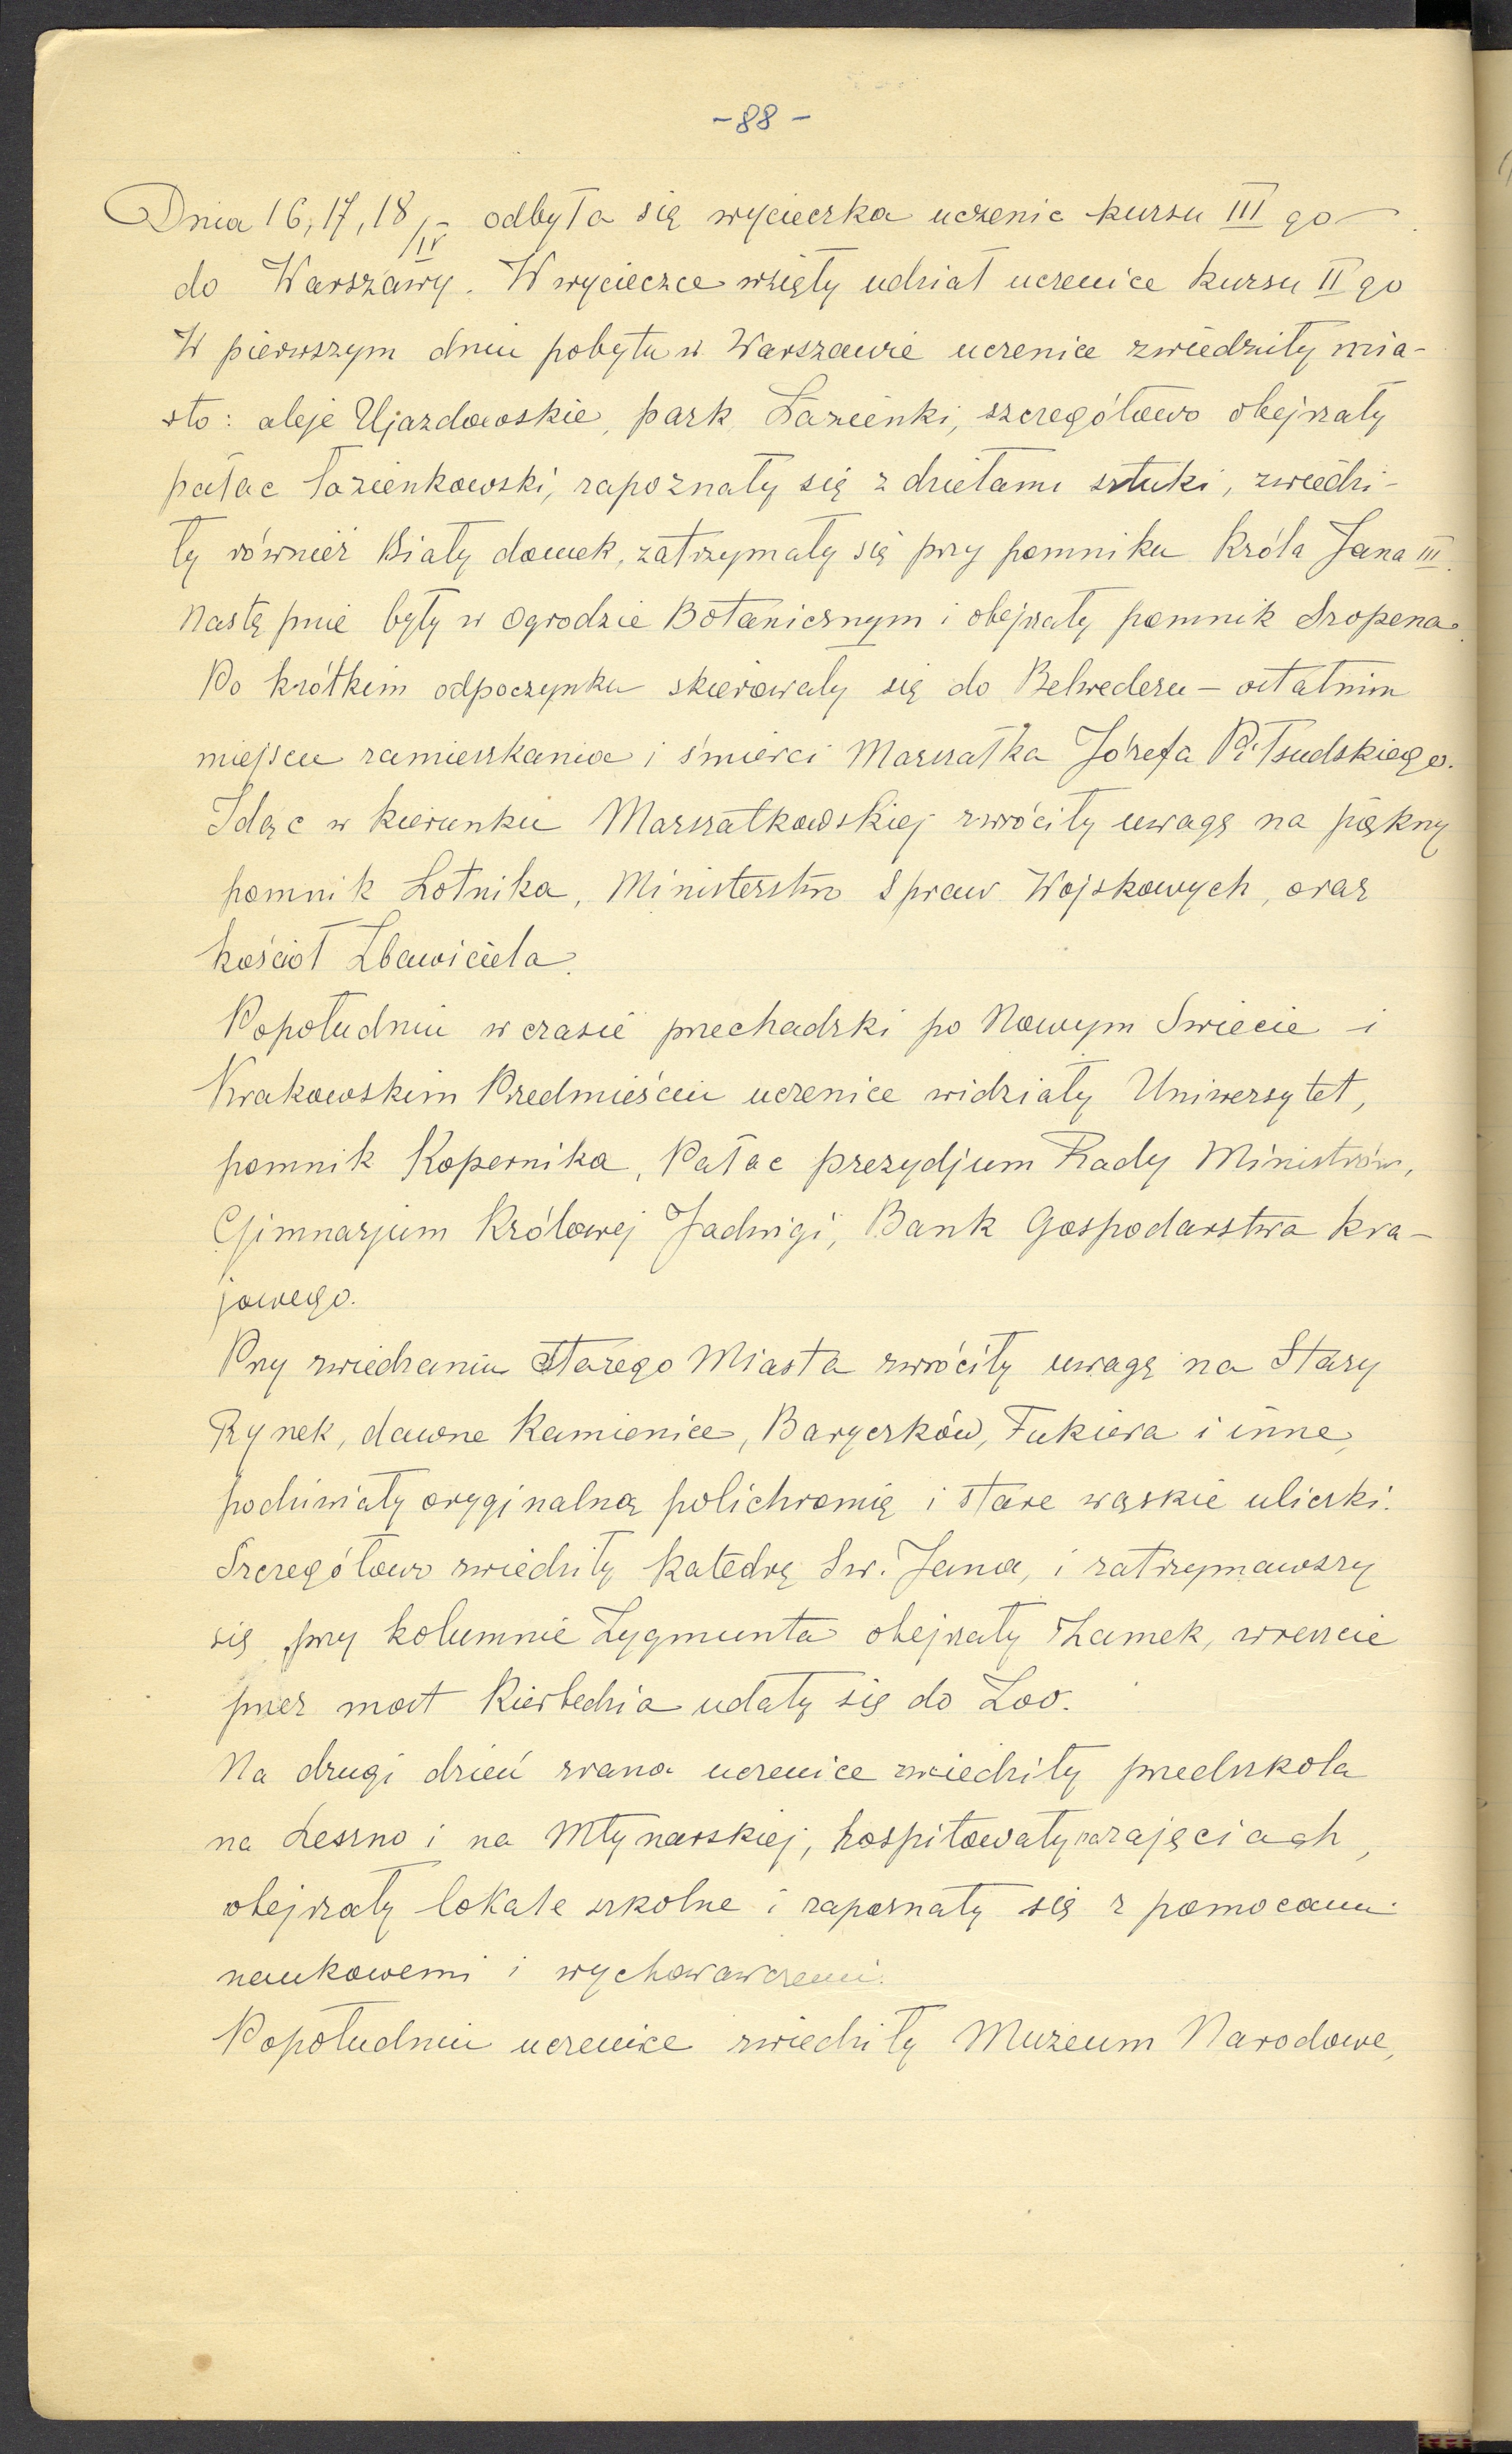 - 88 -
Dnia 16, 17, 18/IV - odbyła się wycieczka uczenic kursu III go
do Warszawy. W wycieczce wzięły udział uczenice kursu II go
W pierwszym dniu pobytu w Warszawie uczenice zwiedziły mia-
sto: aleje Ujazdowskie, park Łazienki, szczegółowo obejrzały
pałac łazienkowski, zapoznały się z dziełami sztuki, zwiedzi-
ły również Biały domek, zatrzymały się przy pomniku Króla Jana III.
Następnie były w Ogrodzie Botanicznym i obejrzały pomnik Szopena.
Po krótkim odpoczynku skierowały się do Belwederu - ostatnim
miejscu zamieszkania i śmierci Marszałka Józefa Piłsudskiego.
Idąc w kierunku Marszałkowskiej zwróciły uwagę na piękny
pomnik Lotnika, Ministerstwo Spraw Wojskowych, oraz
kościoł Zbawiciela.
Popołudniu w czasie przechadzki po Nowym Świecie i
Krakowskim Przedmieściu uczenice widziały Uniwersytet,
pomnik Kopernika, Pałac prezydjum Rady Ministrów,
Gimnazjum Królowej Jadwigi, Bank Gospodarstwa kra-
jowego.
Przy zwiedzaniu Starego Miasta zwróciły uwagę na Stary
Rynek, dawne Kamienice, Baryczków, Fukiera i inne,
podziwiały oryginalną polichromię i stare wąskie uliczki.
Szczegółowo zwiedziły katedrę Św. Jana, i zatrzymawszy
się przy kolumnie Zygmunta obejrzały Zamek, wreszcie
przez most Kierbedzia udały się do Zoo.
Na drugi dzień zrana uczenice zwiedziły przedszkola
na Leszno i na Młynarskiej, hospitowały na zajęciach,
obejrzały lokale szkolne i zapoznały się z pomocami
naukowemi i wychowawczemi.
Popołudniu uczenice zwiedziły Muzeum Narodowe,